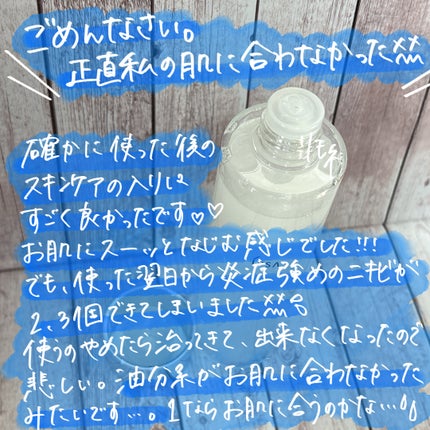 ごめんなさい。
正直私の肌に合わなかった💦
確かに使った後の
スキンケアの入りは
すごく良かったです♡♡
お肌にスーッとなじむ感じでした!!!
でも、使った翌日から炎症強めのニキビが
2、3個できてしまいました
使うのやめたら治ってきて、出来なくなったので
悲しい。油分系がお肌に合わなかった
みたいです…。1ならお肌に合うのかな…